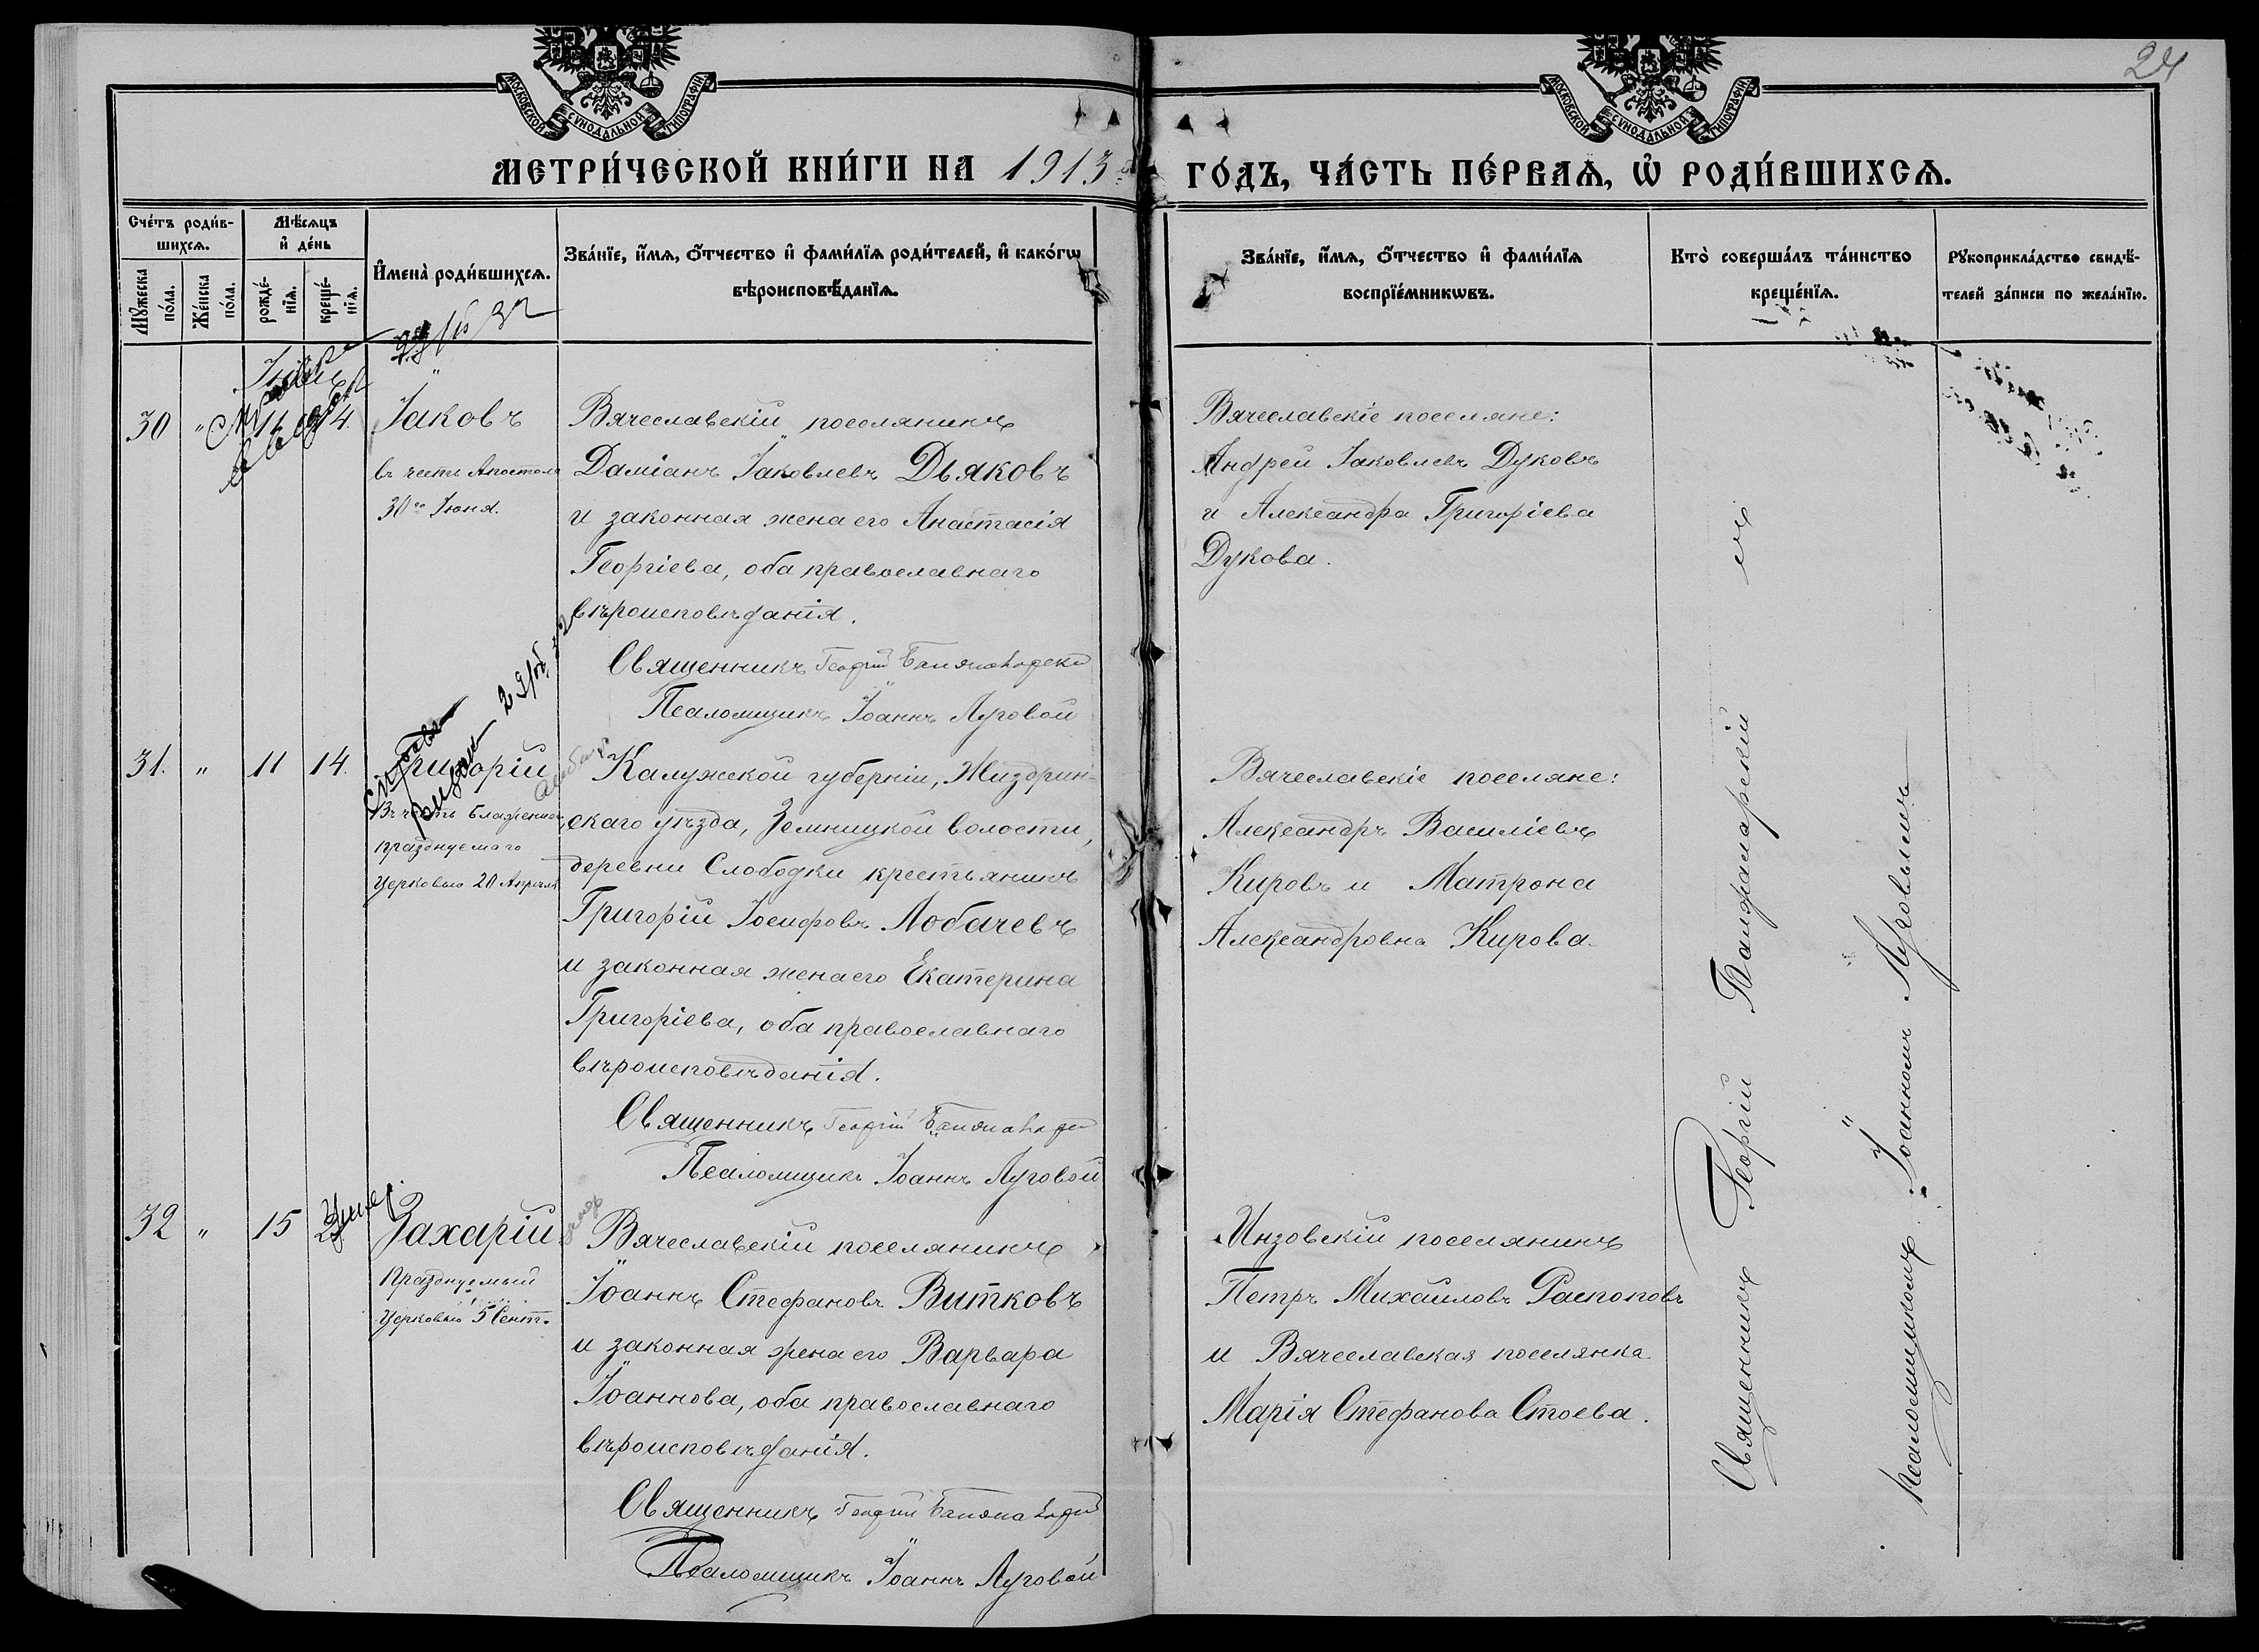 24
МОСКОВСКОЙ СѴНОДАЛЬНОЙ ТИПОГРАФІИ
МОСКОВСКОЙ СѴНОДАЛЬНОЙ ТИПОГРАФІИ
МЕТРИ́ЧЕСКОЙ КНИ́ГИ НА 1913
ГО́ДЪ, ЧА́СТЬ ПЕ́РВАѦ, Ѡ҆ РОДИ́ВШИХСѦ.
Сче́тъ роди́в-
шихсѧ.
Мѣ́сѧцъ
и҆ де́нь
Мꙋ́жеска
по́ла.
Же́нска
по́ла.
рожде́-
нїѧ.
креще́-
нїѧ.
И҆мена̀ роди́вшихсѧ.
Зва́нїе, и҆́мѧ, ѻ҆́тчество и҆ фами́лїѧ роди́телей, и҆ како́гѡ
вѣроисповѣ́данїѧ.
Зва́нїе, и҆́мѧ, ѻ҆́тчество и҆ фами́лїѧ
воспрїе́мникѡвъ.
Кто̀ соверша́лъ та́инство
креще́нїѧ.
Рꙋкоприкла́дство свидѣ́-
телей за́писи по жела́нїю.
30 " 11 14. Іаковъ
въ честь Апостола
30го Іюня.
Вячеславскій поселянинъ
Даміанъ Іаковлевъ Дьяковъ
и законная жена его Анастасія
Георгіева, оба православнаго
вѣроисповѣданія.
Священникъ Георгій
Псаломщикъ Іоаннъ Луговой
Вячеславскіе поселяне:
Андрей Іаковлевъ Дуковъ
и Александра Григоріева
Дукова.
31. " 11 14. Григорій
Въ честь блаженнаго,
празднуемаго
Церковью 20 Апрѣля
Калужской губерніи, Жиздрин-
скаго уѣзда, Земницкой волости,
деревни Слободки крестьянинъ
Григорій Іосифовъ Лобачевъ
и законная жена его Екатерина
Григоріева, оба православнаго
вѣроисповѣданія.
Священникъ Георгій
Псаломщикъ Іоаннъ Луговой
Вячеславскіе поселяне:
Александръ Василіевъ
Кировъ и Матрона
Александровна Кирова.
32 " 15 Захарій
Празднуемый
Церковью 5 Сент.
Вячеславскій поселянинъ
Іоаннъ Стефановъ Витковъ
и законная жена его Варвара
Іоаннова, оба православнаго
вѣроисповѣданія.
Священникъ Георгій
Псаломщикъ Іоаннъ Луговой
Инзовскій поселянинъ
Петръ Михайловъ Распоповъ
и Вячеславская поселянка
Марія Стефанова Стоева.
Священникъ Георгій
съ
псаломщикомъ Іоанномъ Луговымъ